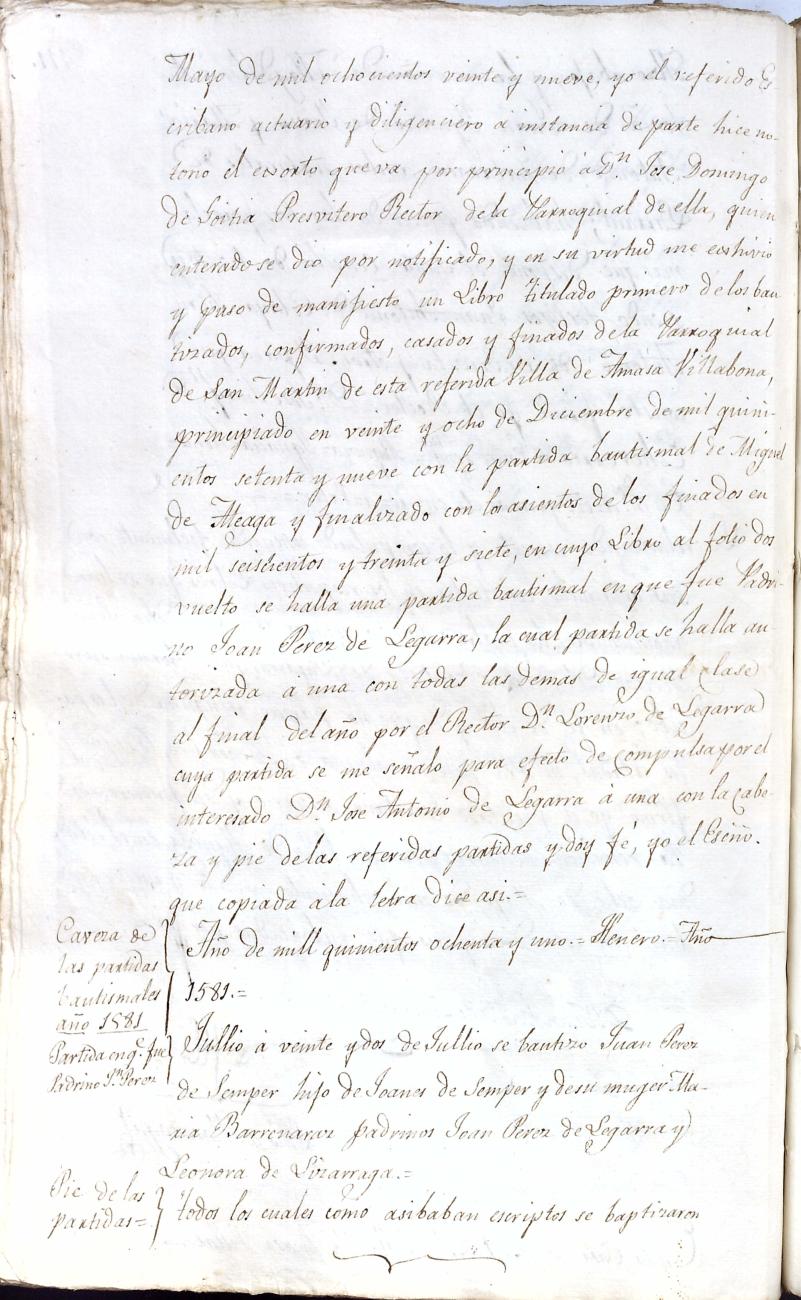 Mayo de mil ochocientos veinte y nueve, yo el referido Es-
cribano actuario y diligenciero a instancia de parte hice no-
torio el exorto que va por principio a Dn. Jose Domingo
de Goitia Presvitero Rector de la Parroquial de ella, quien
enterado se dio por notificado, y en su virtud me exhivio
y puso de manifiesto un Libro titulado primero de los bau-
tizados, confirmados, casados y finados de la Parroquial
de San Martin de esta referida Villa de Amasa Villabona,
principiado en veinte y ocho de Diciembre de mil quini-
entos setenta y nueve con la partida bautismal de Miguel
de Ateaga y finalizado con los asientos de los finados en
mil seiscientos y treinta y siete, en cuyo Libro al folio dos
vuelto se halla una partida bautismal en que fue Padri-
no Joan Perez de Legarra, la cual partida se halla au-
torizada a una con todas las demas de igual clase
al final del año por el Rector Dn. Lorenzo de Legarra
cuya partida se me señalo para efecto de compulsa por el
interesado Dn. Jose Antonio de Legarra à una con la cabe-
za y pie de las referidas partidas y doy fé, yo el Esño.
que copiada à la letra dice asi.=
Caveza de
las partidas
bautismales
año 1581
Año de mill quinientos ochenta y uno.= Henero.= Año
1581.=
Partida en q.e fue
Padrino Jn. Perez
Jullio à veinte y dos de Jullio se bautizo Juan Perez
de Semper hijo de Joanes de Semper y de su muger Ma-
ria Barrenaraz padrinos Joan Perez de Legarra y
Leonora de Lizarraga.=
Pie de las
partidas=
todos los cuales como asibaban escriptos se baptizaron